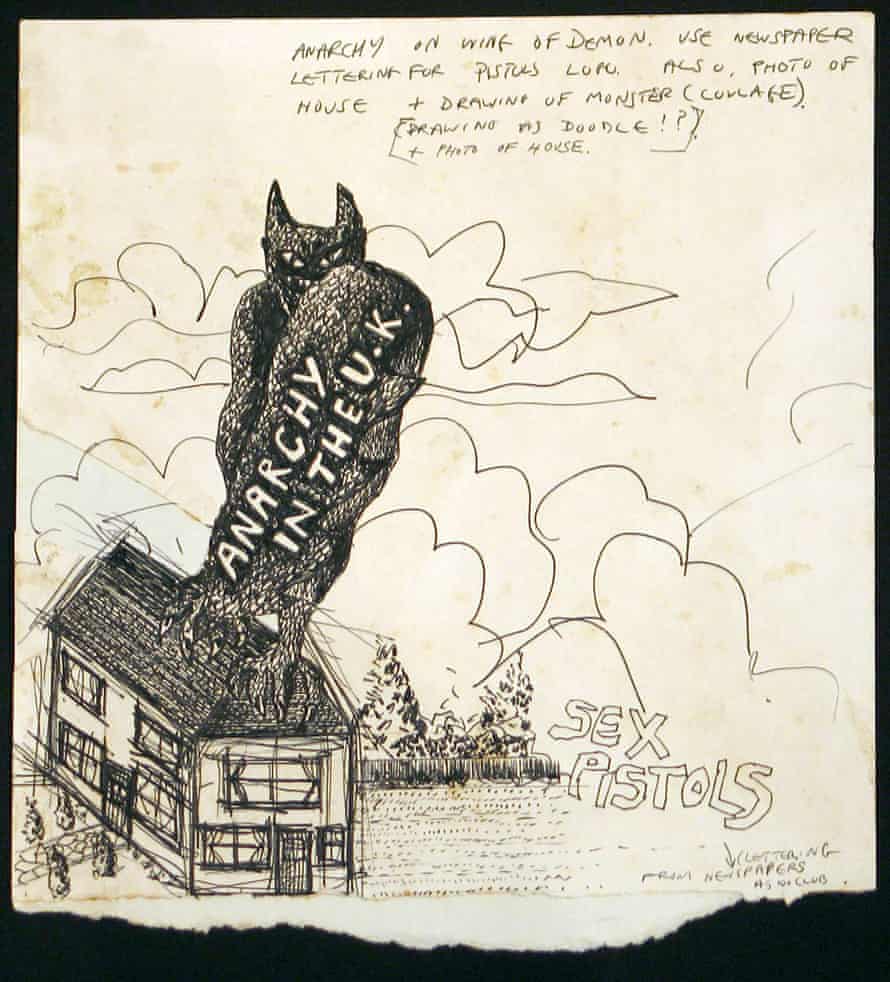 ANARCHY ON WING OF DEMON. USE NEWSPAPER
LETTERING FOR PISTOLS LOGO. ALSO, PHOTO OF
HOUSE + DRAWING OF MONSTER (COLLAGE).
[DRAWING AS DOODLE!?]
+ PHOTO OF HOUSE.
ANARCHY
IN THE U.K.
SEX
PISTOLS
(LETTERING
FROM NEWSPAPERS
AS